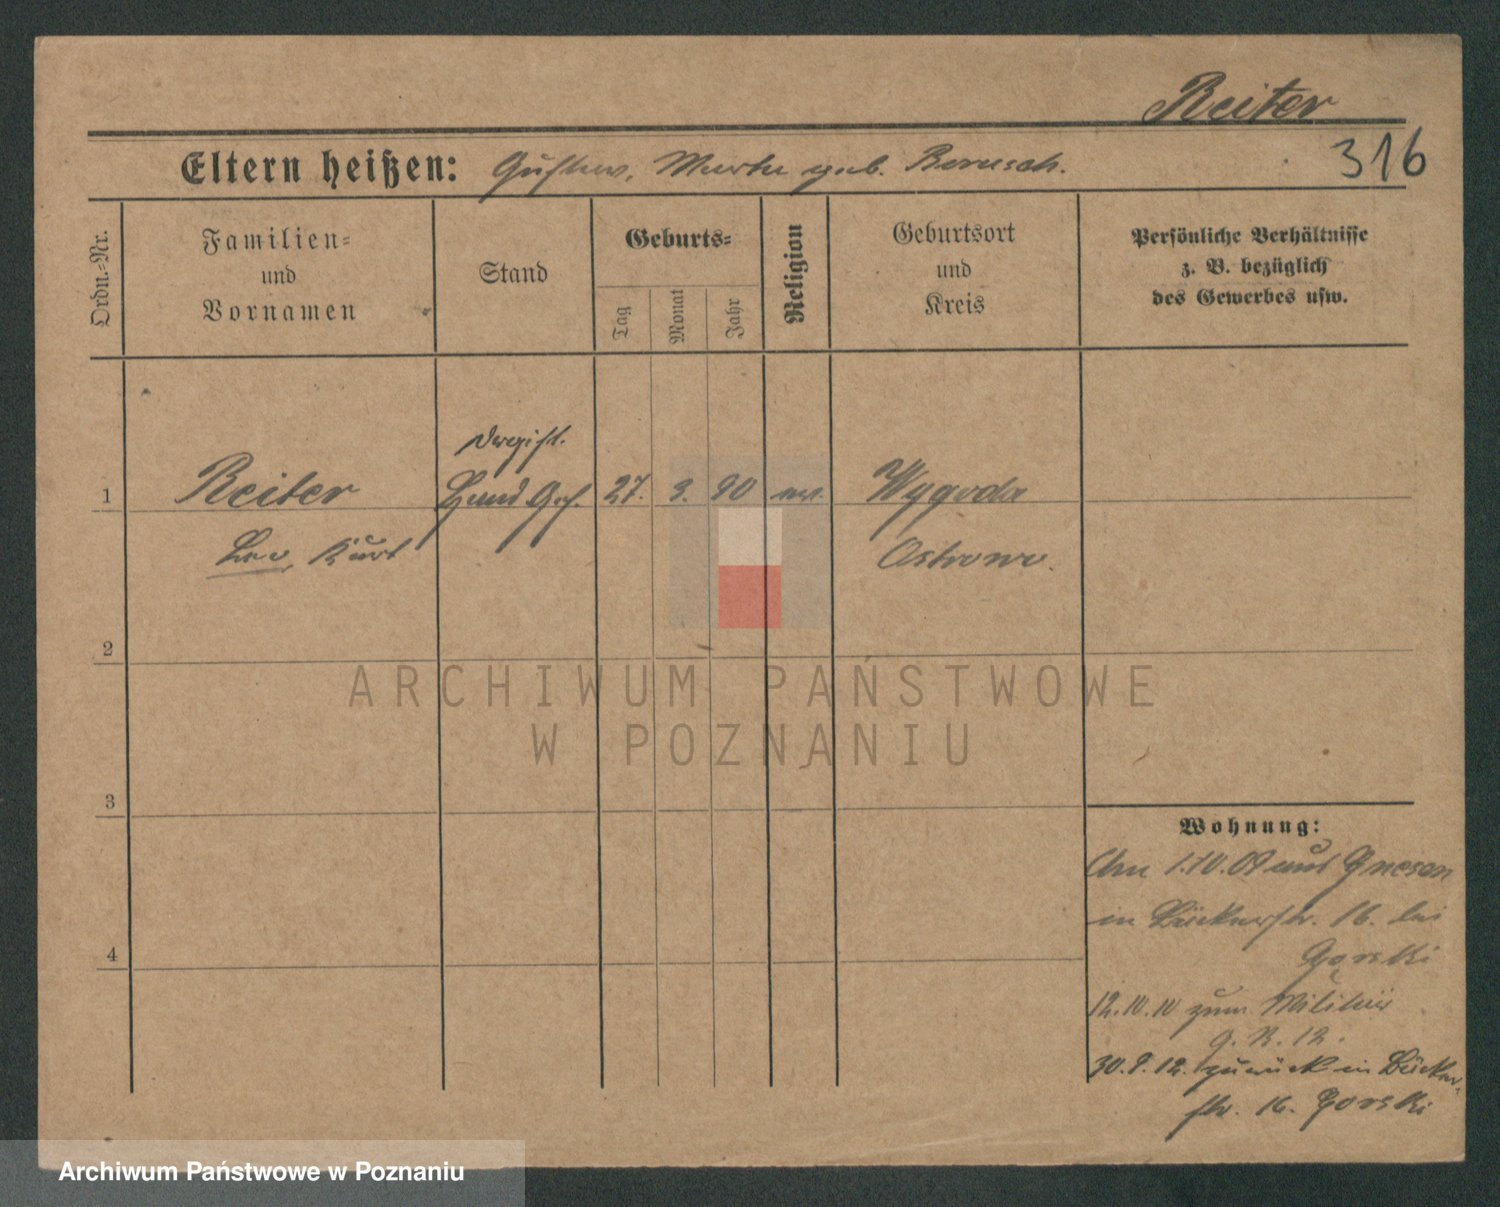 Reiter
316
Eltern heißen: Gustav, Martha geb. Borusch.
Ordn.-Nr.
Familien-
und
Vornamen
Stand
Geburts-
Tag
Monat
Jahr
Religion
Geburtsort
und
Kreis
Persönliche Verhältnisse
z. B. bezüglich
des Gewerbes usw.
1
Reiter
Hand. Geh.
27.
3.
90
Wygoda
Leo, Kurt
Ostrowo.
2
3
4
ARCHIWUM PAŃSTWOWE
W POZNANIU
Wohnung:
Am 1.10.09 aus Gnesen
in Bäckerstr. 16. bei
Gorski
12.10.10 zum Militär
30.9.12. zurück in Bäcker-
str. 16. Gorski
Archiwum Państwowe w Poznaniu